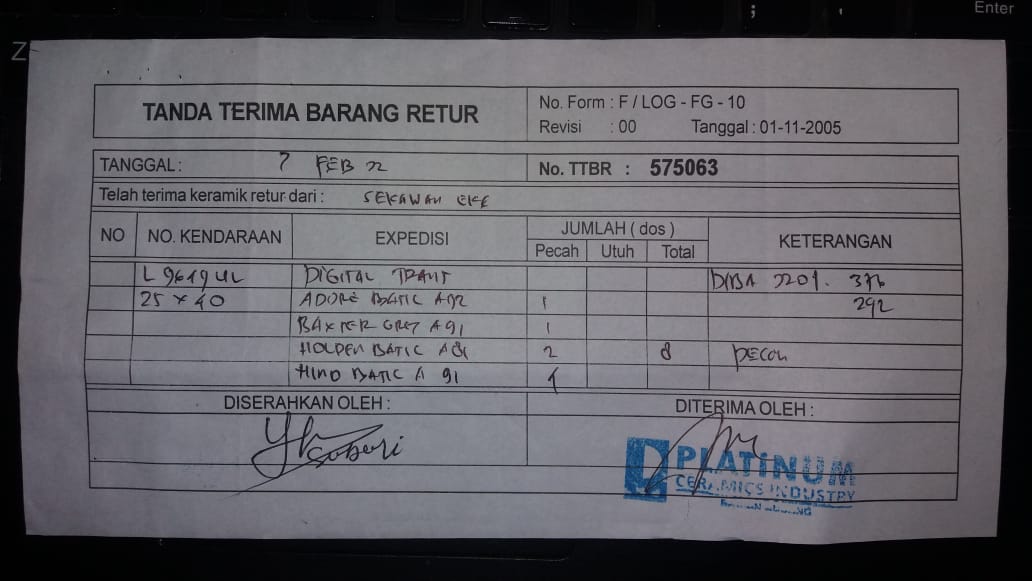 Enter
Z
TANDA TERIMA BARANG RETUR
No. Form : F / LOG - FG - 10
Revisi : 00 Tanggal : 01-11-2005
TANGGAL : 7 FEB 22
No. TTBR : 575063
Telah terima keramik retur dari : SEKAWAN
NO NO. KENDARAAN EXPEDISI JUMLAH ( dos ) KETERANGAN
Pecah Utuh Total
L 9619 UL DIGITAL
25 x 40 ADORE BATIC 1 292
BAXTER GREY A 91 1
HOLDEN BATIC 2 8
HINO BATIC A 91 4
DISERAHKAN OLEH :
DITERIMA OLEH :
PLATINUM
CERAMICS INDUSTRY